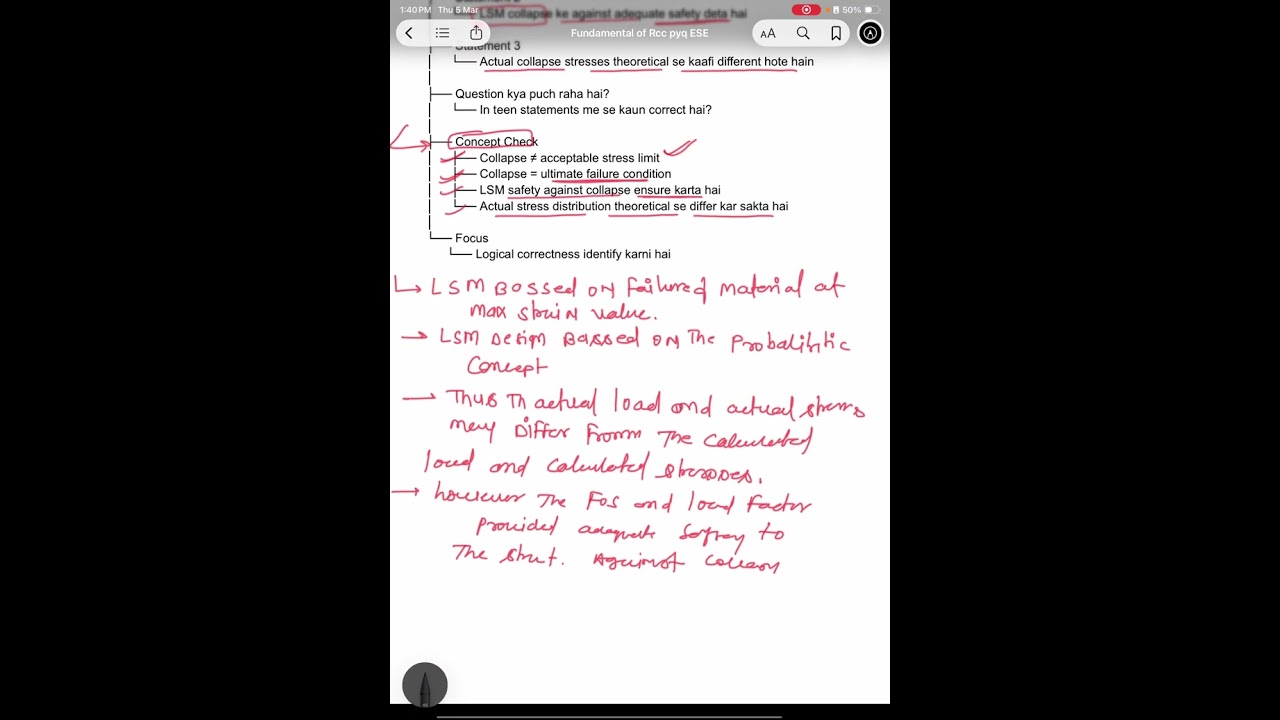 1:40 PM Thu 5 Mar 50%
LSM collapse ke against adequate safety deta hai
Fundamental of Rcc pyq ESE
AA
Statement 3
Actual collapse stresses theoretical se kaafi different hote hain
Question kya puch raha hai?
In teen statements me se kaun correct hai?
Concept Check
Collapse ≠ acceptable stress limit
Collapse = ultimate failure condition
LSM safety against collapse ensure karta hai
Actual stress distribution theoretical se differ kar sakta hai
Focus
Logical correctness identify karni hai
LSM Bossed on failure of Material at
max strain value.
→ LSM Design Bassed on The Probalibitic
Concept
→ Thus Th actual load and actual stress
may Differ Fromm The Calculated
load and calculated stresses.
→ however The Fos and load factor
Provided adequate to
The strut. Against